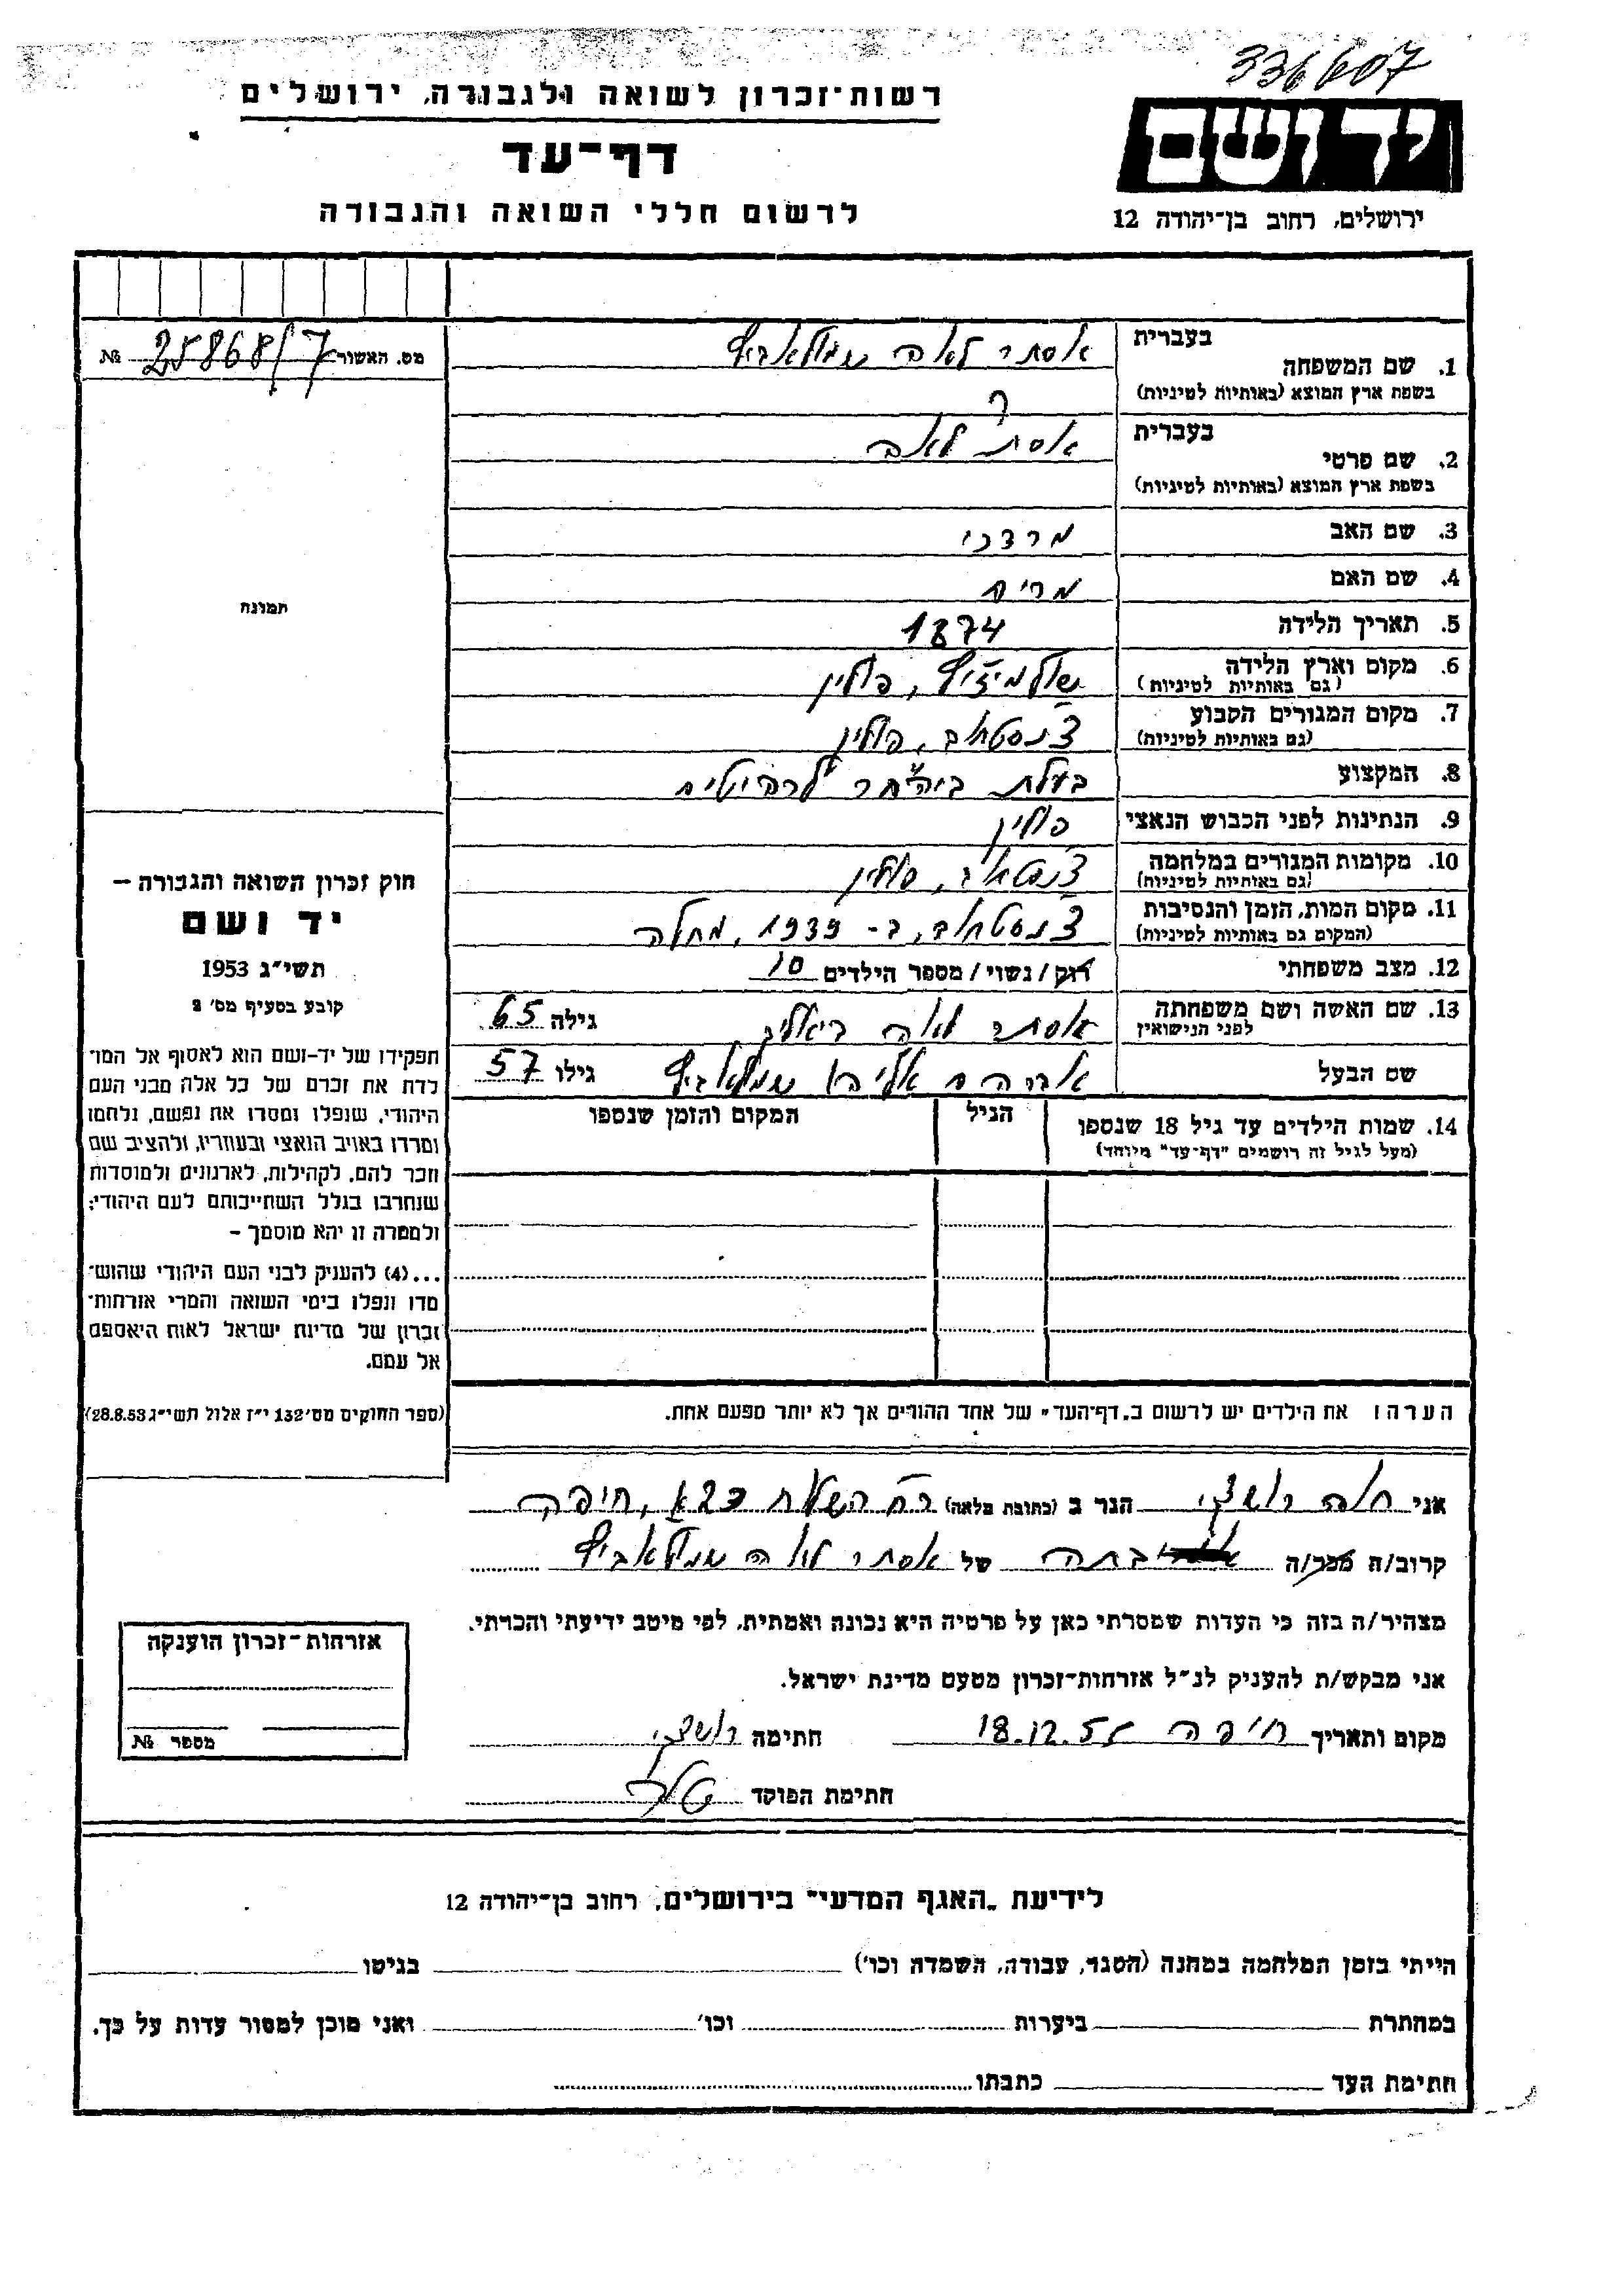 336607
רשות-זכרון לשואה ולגבורה, ירושלים
דף-עד
לרשום חללי השואה והגבורה
יד ושם
ירושלים, רחוב בן-יהודה 12
מס. האשור 25868/7 №
תמונה
חוק זכרון השואה והגבורה –
יד ושם
תשי"ג 1953
קובע בסעיף מס' 2
תפקידו של יד-ושם הוא לאסוף אל המו־
לדת את זכרם של כל אלה מבני העם
היהודי, שנפלו ומסרו את נפשם, נלחמו
ומרדו באויב הנאצי ובעוזריו, ולהציב שם
וזכר להם, לקהילות, לארגונים ולמוסדות
שנחרבו בגלל השתייכותם לעם היהודי;
ולמטרה זו יהא מוסמך –
...(4) להעניק לבני העם היהודי שהוש־
מדו ונפלו בימי השואה והמרי אזרחות־
זכרון של מדינת ישראל לאות היאספם
אל עמם.
(ספר החוקים מס' 132 י"ז אלול תשי"ג 28.8.53)
בעברית
1. שם המשפחה אסתר לאה
בשפת ארץ המוצא (באותיות לטיניות)
בעברית
2. שם פרטי אסתר לאה
בשפת ארץ המוצא (באותיות לטיניות)
3. שם האב מרדכי
4. שם האם מרים
5. תאריך הלידה 1874
6. מקום וארץ הלידה פולין
(גם באותיות לטיניות)
7. מקום המגורים הקבוע צ'נסטחוב, פולין
(גם באותיות לטיניות)
8. המקצוע בעלת ביהח"ר לרהיטים
9. הנתינות לפני הכבוש הנאצי פולין
10. מקומות המגורים במלחמה צ'נסטחוב, פולין
(גם באותיות לטיניות)
11. מקום המות, הזמן והנסיבות צ'נסטחוב, ב- 1939, מחלה
(המקום גם באותיות לטיניות)
12. מצב משפחתי רוק/נשוי/מספר הילדים 10
13. שם האשה ושם משפחתה אסתר לאה גילה 65
לפני הנישואין
שם הבעל אברהם אליהו גילו 57
14. שמות הילדים עד גיל 18 שנספו הגיל המקום והזמן שנספו
(מעל לגיל זה רושמים "דף-עד" מיוחד)
הערה: את הילדים יש לרשום ב"דף-העד" של אחד ההורים אך לא יותר מפעם אחת.
אני חוה הגר ב (כתובת מלאה) רח' השלח חיפה
קרוב/ה מכר/ה בתה של אסתר לאה
מצהיר/ה בזה כי העדות שמסרתי כאן על פרטיה היא נכונה ואמתית, לפי מיטב ידיעתי והכרתי.
אני מבקש/ת להעניק לנ"ל אזרחות-זכרון מטעם מדינת ישראל.
מקום ותאריך חיפה 18.12.55 חתימה
חתימת הפוקד
אזרחות-זכרון הוענקה
מספר №
לידיעת "האגף המדעי" בירושלים, רחוב בן-יהודה 12
הייתי בזמן המלחמה במחנה (הסגר, עבודה, השמדה וכו') בגיטו
במחתרת ביערות וכו' ואני מוכן למסור עדות על כך.
חתימת העד כתבתו